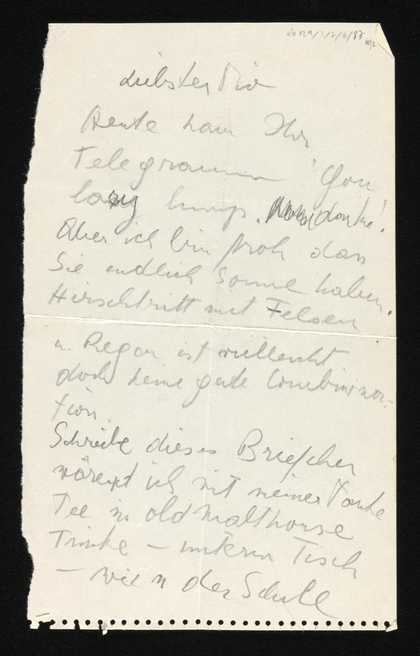 Liebster Dio
Heute kam Ihr
Telegramm 'You
lazy lump. danke!
Aber ich bin froh dass
Sie endlich Sonne haben.
Hirschtritt mit Felsen
u. Regen ist vielleicht
doch keine gute Combina-
tion.
Schreibe dieses Briefchen
während ich mit meiner Tante
Tee in old Malthouse
Trinke – unterm Tisch
– wie in der Schule